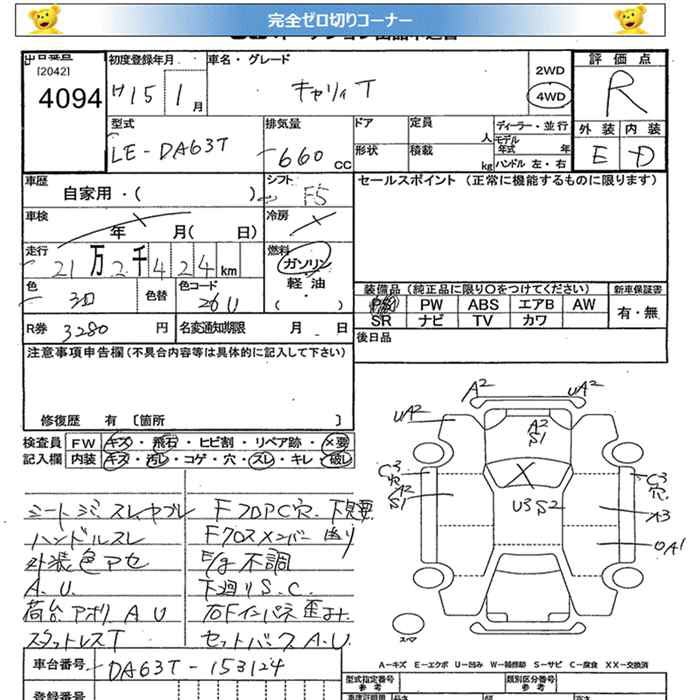 完全ゼロ切りコーナー
[2042]
4094
初度登録年月
H15 1月
車名・グレード
キャリィT
2WD
4WD
評価点
R
外装 内装
E D
型式
LE-DA63T
排気量
660 CC
ドア
定員 人
形状
積載 kg
ディーラー・並行
モデル年式 年
ハンドル 左・右
車歴
自家用・( )
シフト
F5
セールスポイント (正常に機能するものに限ります)
車検
年 月( 日)
冷房
走行
21万2千424km
燃料
ガソリン
軽油
( )
色
色替
色コード
26U
装備品 (純正品に限り○をつけてください)
新車保証書
PS PW ABS エアB AW
SR ナビ TV カワ
有・無
R券 3280円
名変通知期限 月 日
後日品
注意事項申告欄 (不具合内容等は具体的に記入して下さい)
修復歴 有 〔箇所 〕
検査員 FW キズ・飛石・ヒビ割・リペア跡・×要
記入欄 内装 キズ・汚レ・コゲ・穴・スレ・キレ・破レ
シートシミ スレ ヤブレ
ハンドルスレ
外装色アセ
A.U.
荷台アオリ A U
スタットレスT
FフロアC穴. 下見要
Fクロスメンバー曲り
E/g不調
下廻りS.C.
右Fインパネ歪み.
セットバックA.U.
A2
UA2
UA2
A2
S1
C3
穴
A2
S1
U3S2
C3
穴
A3
OA1
スペア
A-キズ E-エクボ U-凹み W-補修跡 S-サビ C-腐食 XX-交換済
車台番号 DA63T-153124
型式指定番号
参考
類別区分番号
参考
登録番号